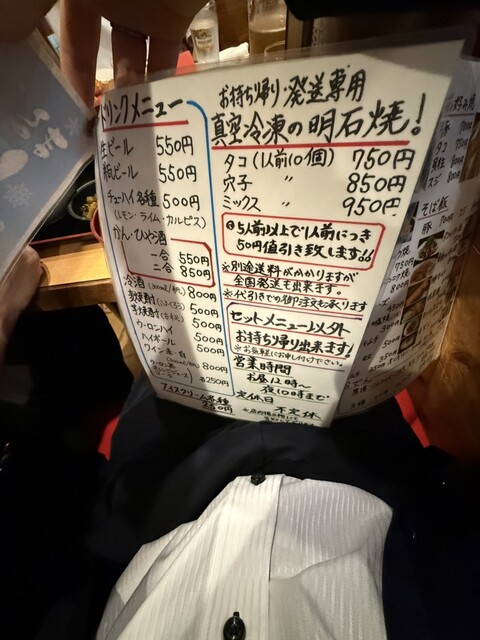 ドリンクメニュー
生ビール 550円
瓶ビール 550円
チューハイ各種 500円
(レモン・ライム・カルピス)
かん・ひや酒
一合 550円
二合 850円
冷酒 800円
麦焼酎 500円
芋焼酎 500円
ウーロンハイ 500円
ハイボール 500円
ワイン 赤・白 800円
各250円
アイスクリーム各種
250円
お持ち帰り・発送専用
真空冷凍の明石焼!
タコ(1人前10個) 750円
穴子 〃 850円
ミックス 〃 950円
5人前以上で1人前につき
50円値引き致します
※別途送料がかかりますが
全国発送も出来ます。
※代引きでの御注文も承ります
セットメニュー以外
お持ち帰り出来ます!
※お気軽にお申し付け下さい。
営業時間
お昼12時〜
夜10時まで
定休日
不定休
そば飯